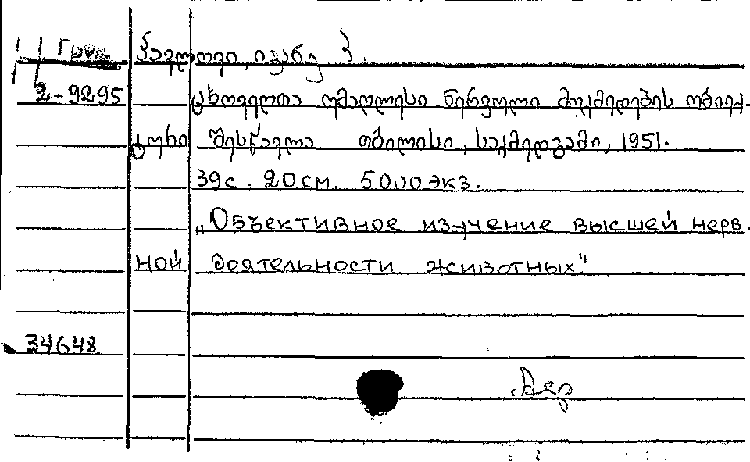 Груз. პავლოვი, ივანე პ.
2-9295 ცხოველთა უმაღლესი ნერვული მოქმედების ობიექ-
ტური შესწავლა თბილისი, საქმედგამი, 1951.
39с. 20см. 5000экз.
„Объективное изучение высшей нерв.
ной деятельности животных"
34648